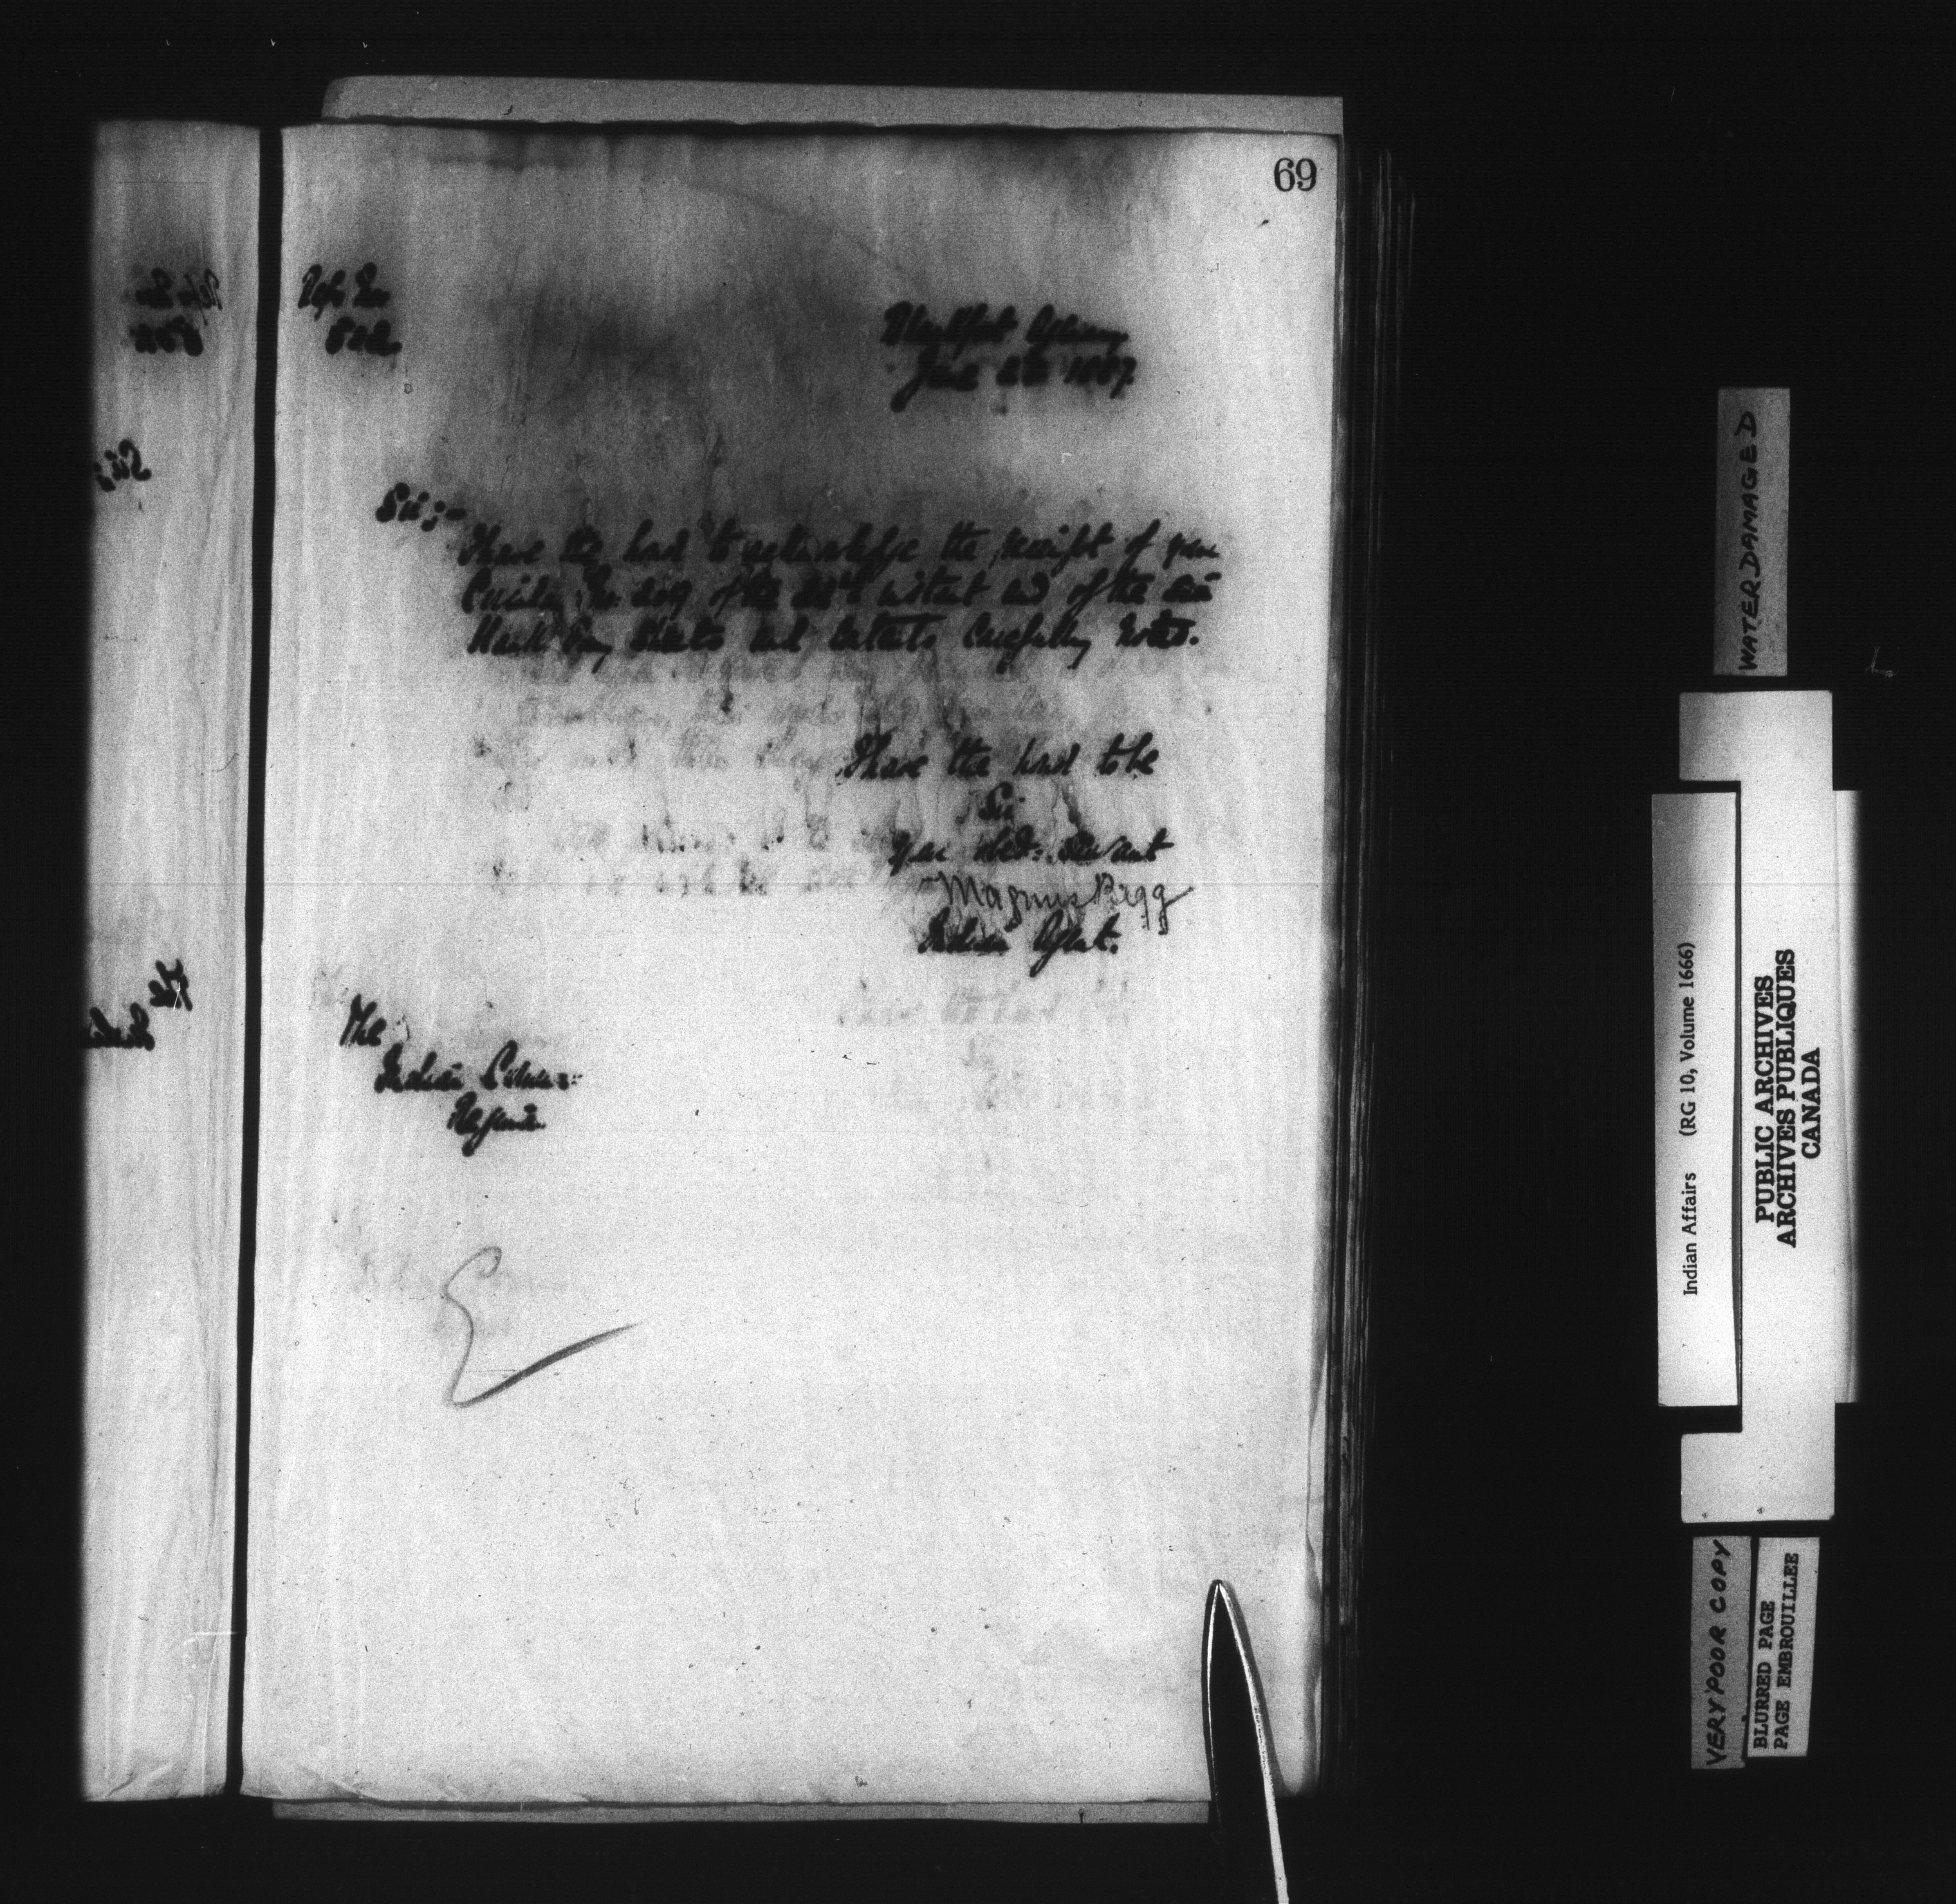 69
Blackfoot Agency
June 1887.
Sir:-
I have the hond to acknowledge the receipt of your
Circular No. 209 of the instant and of the
and contents carefully noted.
I have the hond to be
Sir
Your obed: servant
Magnus Begg
Indian Agent.
The
Indian Commr:
Regina
WATER DAMAGED
Indian Affairs (RG 10, Volume 1666)
PUBLIC ARCHIVES
ARCHIVES PUBLIQUES
CANADA
VERY POOR COPY
BLURRED PAGE
PAGE EMBROUILLEE